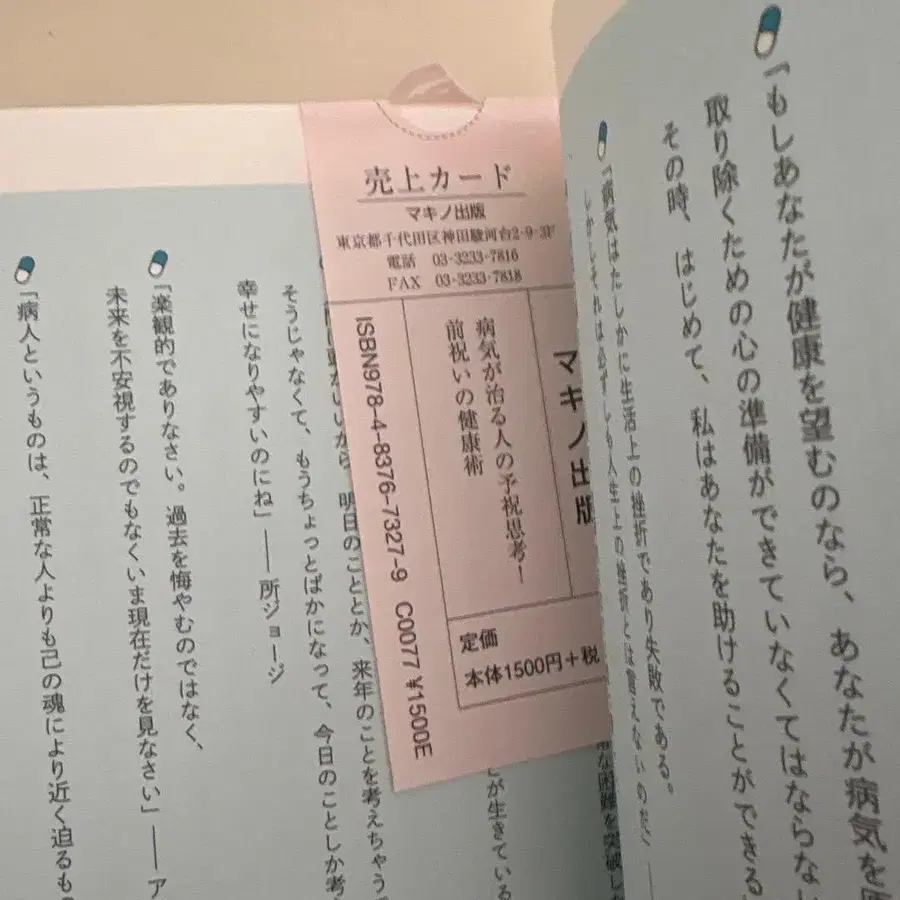 『もしあなたが健康を望むのなら、あなたが病気を
取り除くための心の準備ができていなくてはならない
その時、はじめて、私はあなたを助けることができる
『病気はたしかに生活上の挫折であり失敗である。
しかしそれは必ずしも人生上の挫折とは言えないのだ
売上カード
マキノ出版
東京都千代田区神田駿河台2-9-3F
電話 03-3233-7816
FAX 03-3233-7818
マキノ出版
病気が治る人の予祝思考!
前祝いの健康術
ISBN978-4-8376-7327-9 C0077 ¥1500E
定価
本体1500円+税
が生きている
明日のこととか、来年のことを考えちゃう
そうじゃなくて、もうちょっとばかになって、今日のことしか考
幸せになりやすいのにね」――所ジョージ
『楽観的でありなさい。過去を悔やむのではなく、
未来を不安視するのでもなくいま現在だけを見なさい」――ア
『病人というものは、正常な人よりも己の魂により近く迫るも